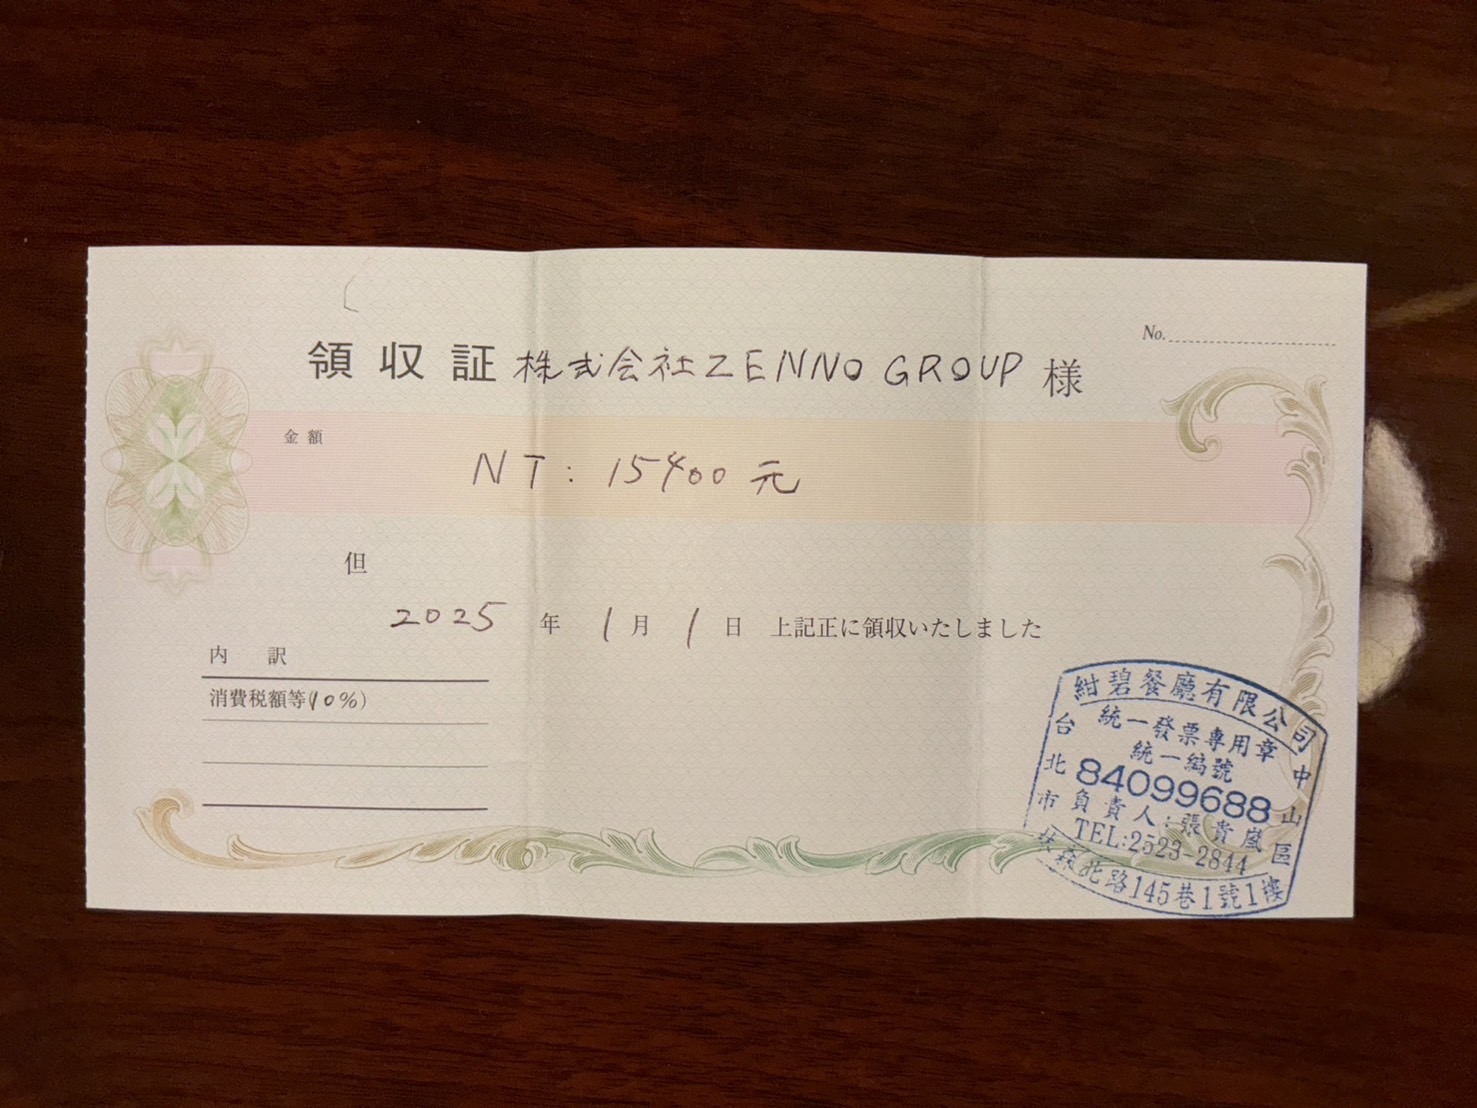 領収証 株式会社ZENNO GROUP 様
No.
金額
NT: 15400 元
但
2025 年 1 月 1 日 上記正に領収いたしました
内 訳
消費税額等(10%)
紺碧餐廳有限公司
統一發票專用章
統一編號
84099688
負責人:張貴嵐
TEL:2523-2844
台北市中山區林森北路145巷1號1樓